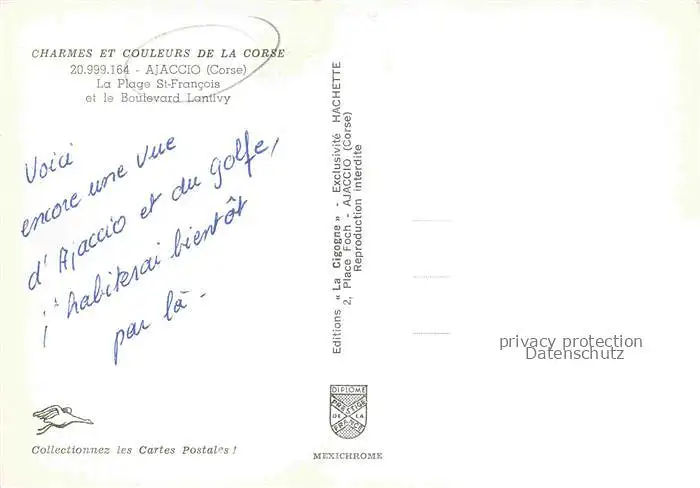 CHARMES ET COULEURS DE LA CORSE
20.999.164 - AJACCIO (Corse)
La Plage St-François
et le Boulevard Lantivy
Voici
encore une vue
d'Ajaccio et du golfe,
j'habiterai bientôt
par là -
Collectionnez les Cartes Postales !
Editions « La Cigogne » - Exclusivité HACHETTE
2, Place Foch - AJACCIO (Corse)
Reproduction interdite
DIPLOME
PRESTIGE
DE LA
FRANCE
MEXICHROME
privacy protection
Datenschutz